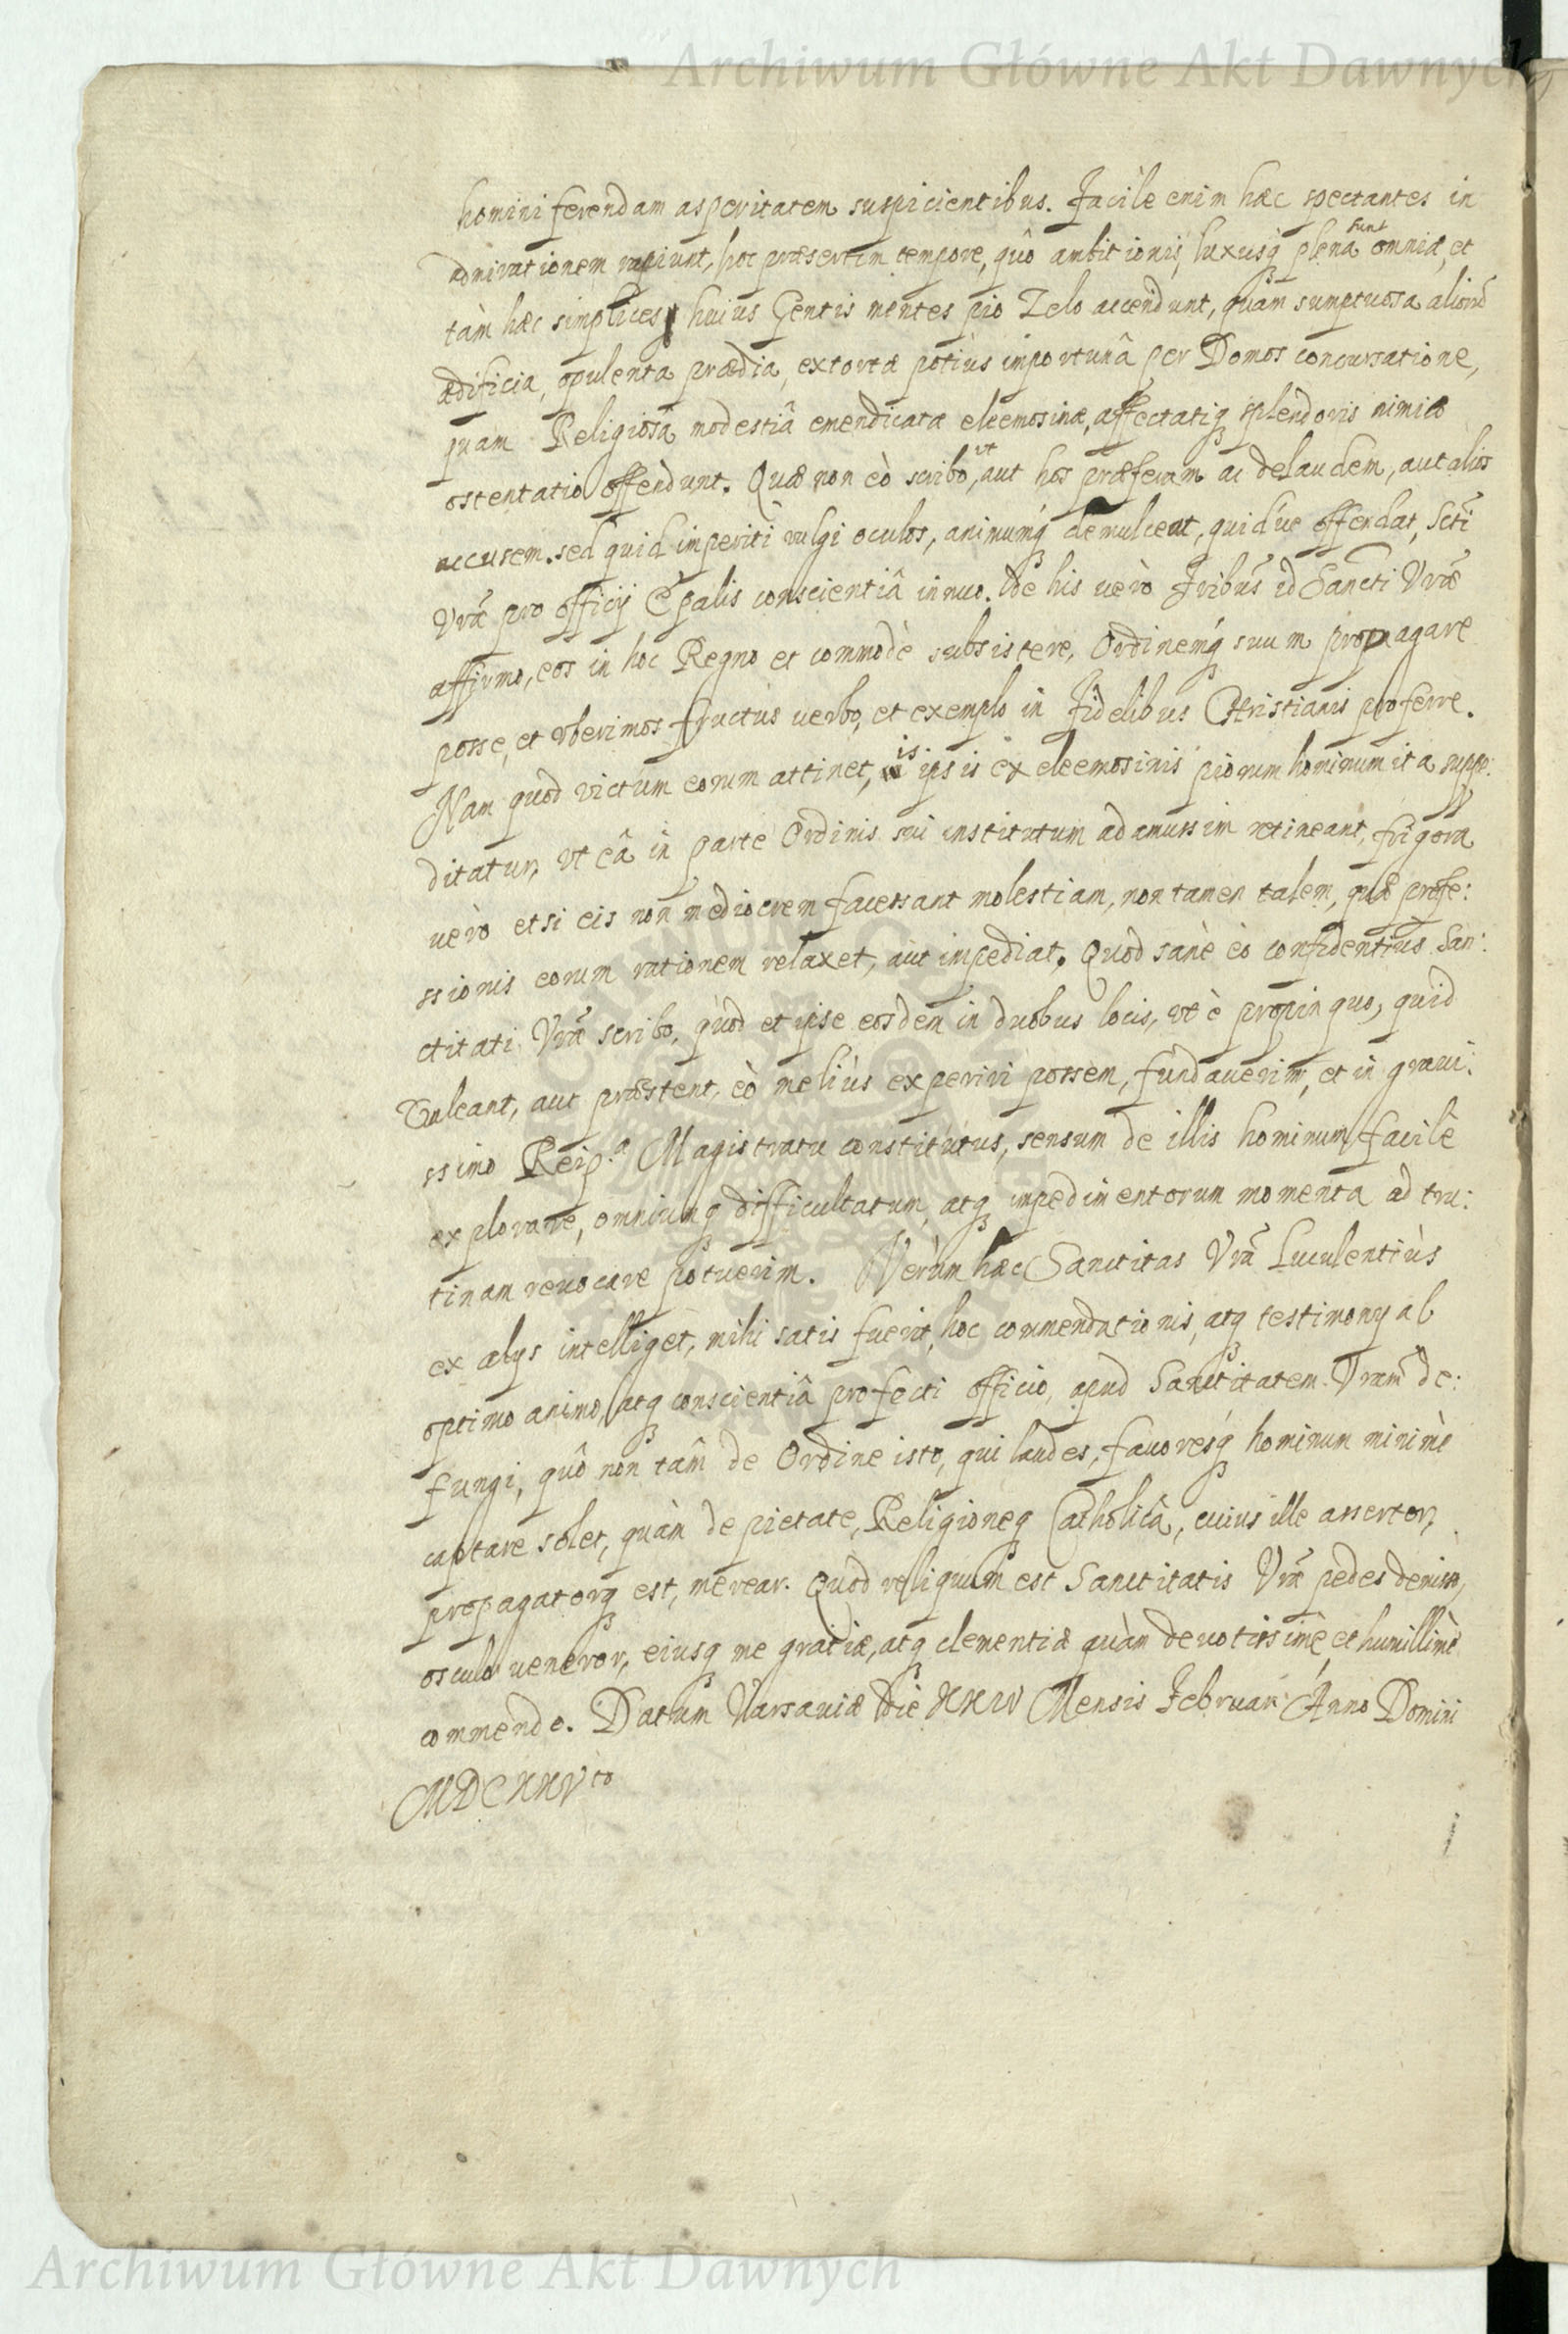 Archiwum Główne Akt Dawnych
homini ferendam asperitatem suspicientibus. Facilè enim hæc spectantes in
admirationem rapiunt, hoc præsertim tempore, quô ambitionis, luxusq́ plena sunt omnia, et
tàm hæc simplices huius Gentis mentes pio Zelo accendunt, quàm sumptuosa aliorũ
ædificia, opulenta prædia, extortæ potiùs importunâ per Domos concursatione,
quam Religiosâ modestiâ emendicatæ eleemosinæ, affectatiq splendoris nimia
ostentatio offendunt. Quæ non eò scribo, ut aut hos præferam ac delaudem, aut alios
accusem. sed quid imperiti vulgi oculos, animumq́ demulceat, quid ue offendat, Scti
Vræ pro officij Epalis conscientiâ innuo. De his uerò Fribus id Sancti Vræ
affirmo, eos in hoc Regno et commodè subsistere, Ordinemq́ suum propagare
posse, et vberimos fructus uerbo, et exemplo in Fidelibus Christianis proferre.
Nam quod victum eorum attinet, is ipsis ex eleemosinis piorum hominum ita supp:
ditatur, vt eâ in parte Ordinis sui institutum adamussim retineant, frigora
uerò etsi eis non mediocrem facessant molestiam, non tamen talem, quæ profe:
ssionis eorum rationem relaxet, aut impediat. Quòd sanè eò confidentius San:
ctitati Vræ scribo, quòd et ipse eosdem in duobus locis, vt è propinquo, quid
ualeant, aut præstent, eò meliùs experiri possem, fundauerim, et in graui:
ssimo Reip.a Magistratu constitutus, sensum de illis hominum facilè
explorare, omniumq difficultatum, atq impedimentorum momenta ad tru:
tinam reuocare potuerim. Verùm hæc Sanctitas Vra Luculentiùs
ex alijs intelliget, mihi satis fuerit, hoc commendationis, atq testimonij ab
optimo animo, atq conscientiâ profecti officio, apud Sanctitatem Vram de:
fungi, quô non tàm de Ordine isto, qui laudes, fauoresq́ hominum minimè
captare solet, quàm de pietate, Religioneq Catholicâ, cuius ille assertor,
propagatorq est, merear. Quod reliquum est Sanctitatis Vræ pedes demisso,
osculo ueneror, eiusq me gratiæ, atq clementiæ quàm deuotissimè et humillimè
commendo. Datum Varsauiæ Die XXIV Mensis Februarii Anno Domini
MDCXXVto
Archiwum Główne Akt Dawnych